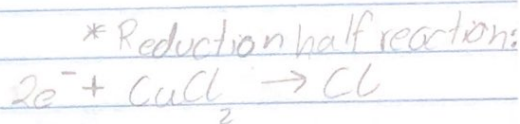 * Reduction half reaction:
2e⁻ + CuCl₂ → Cl